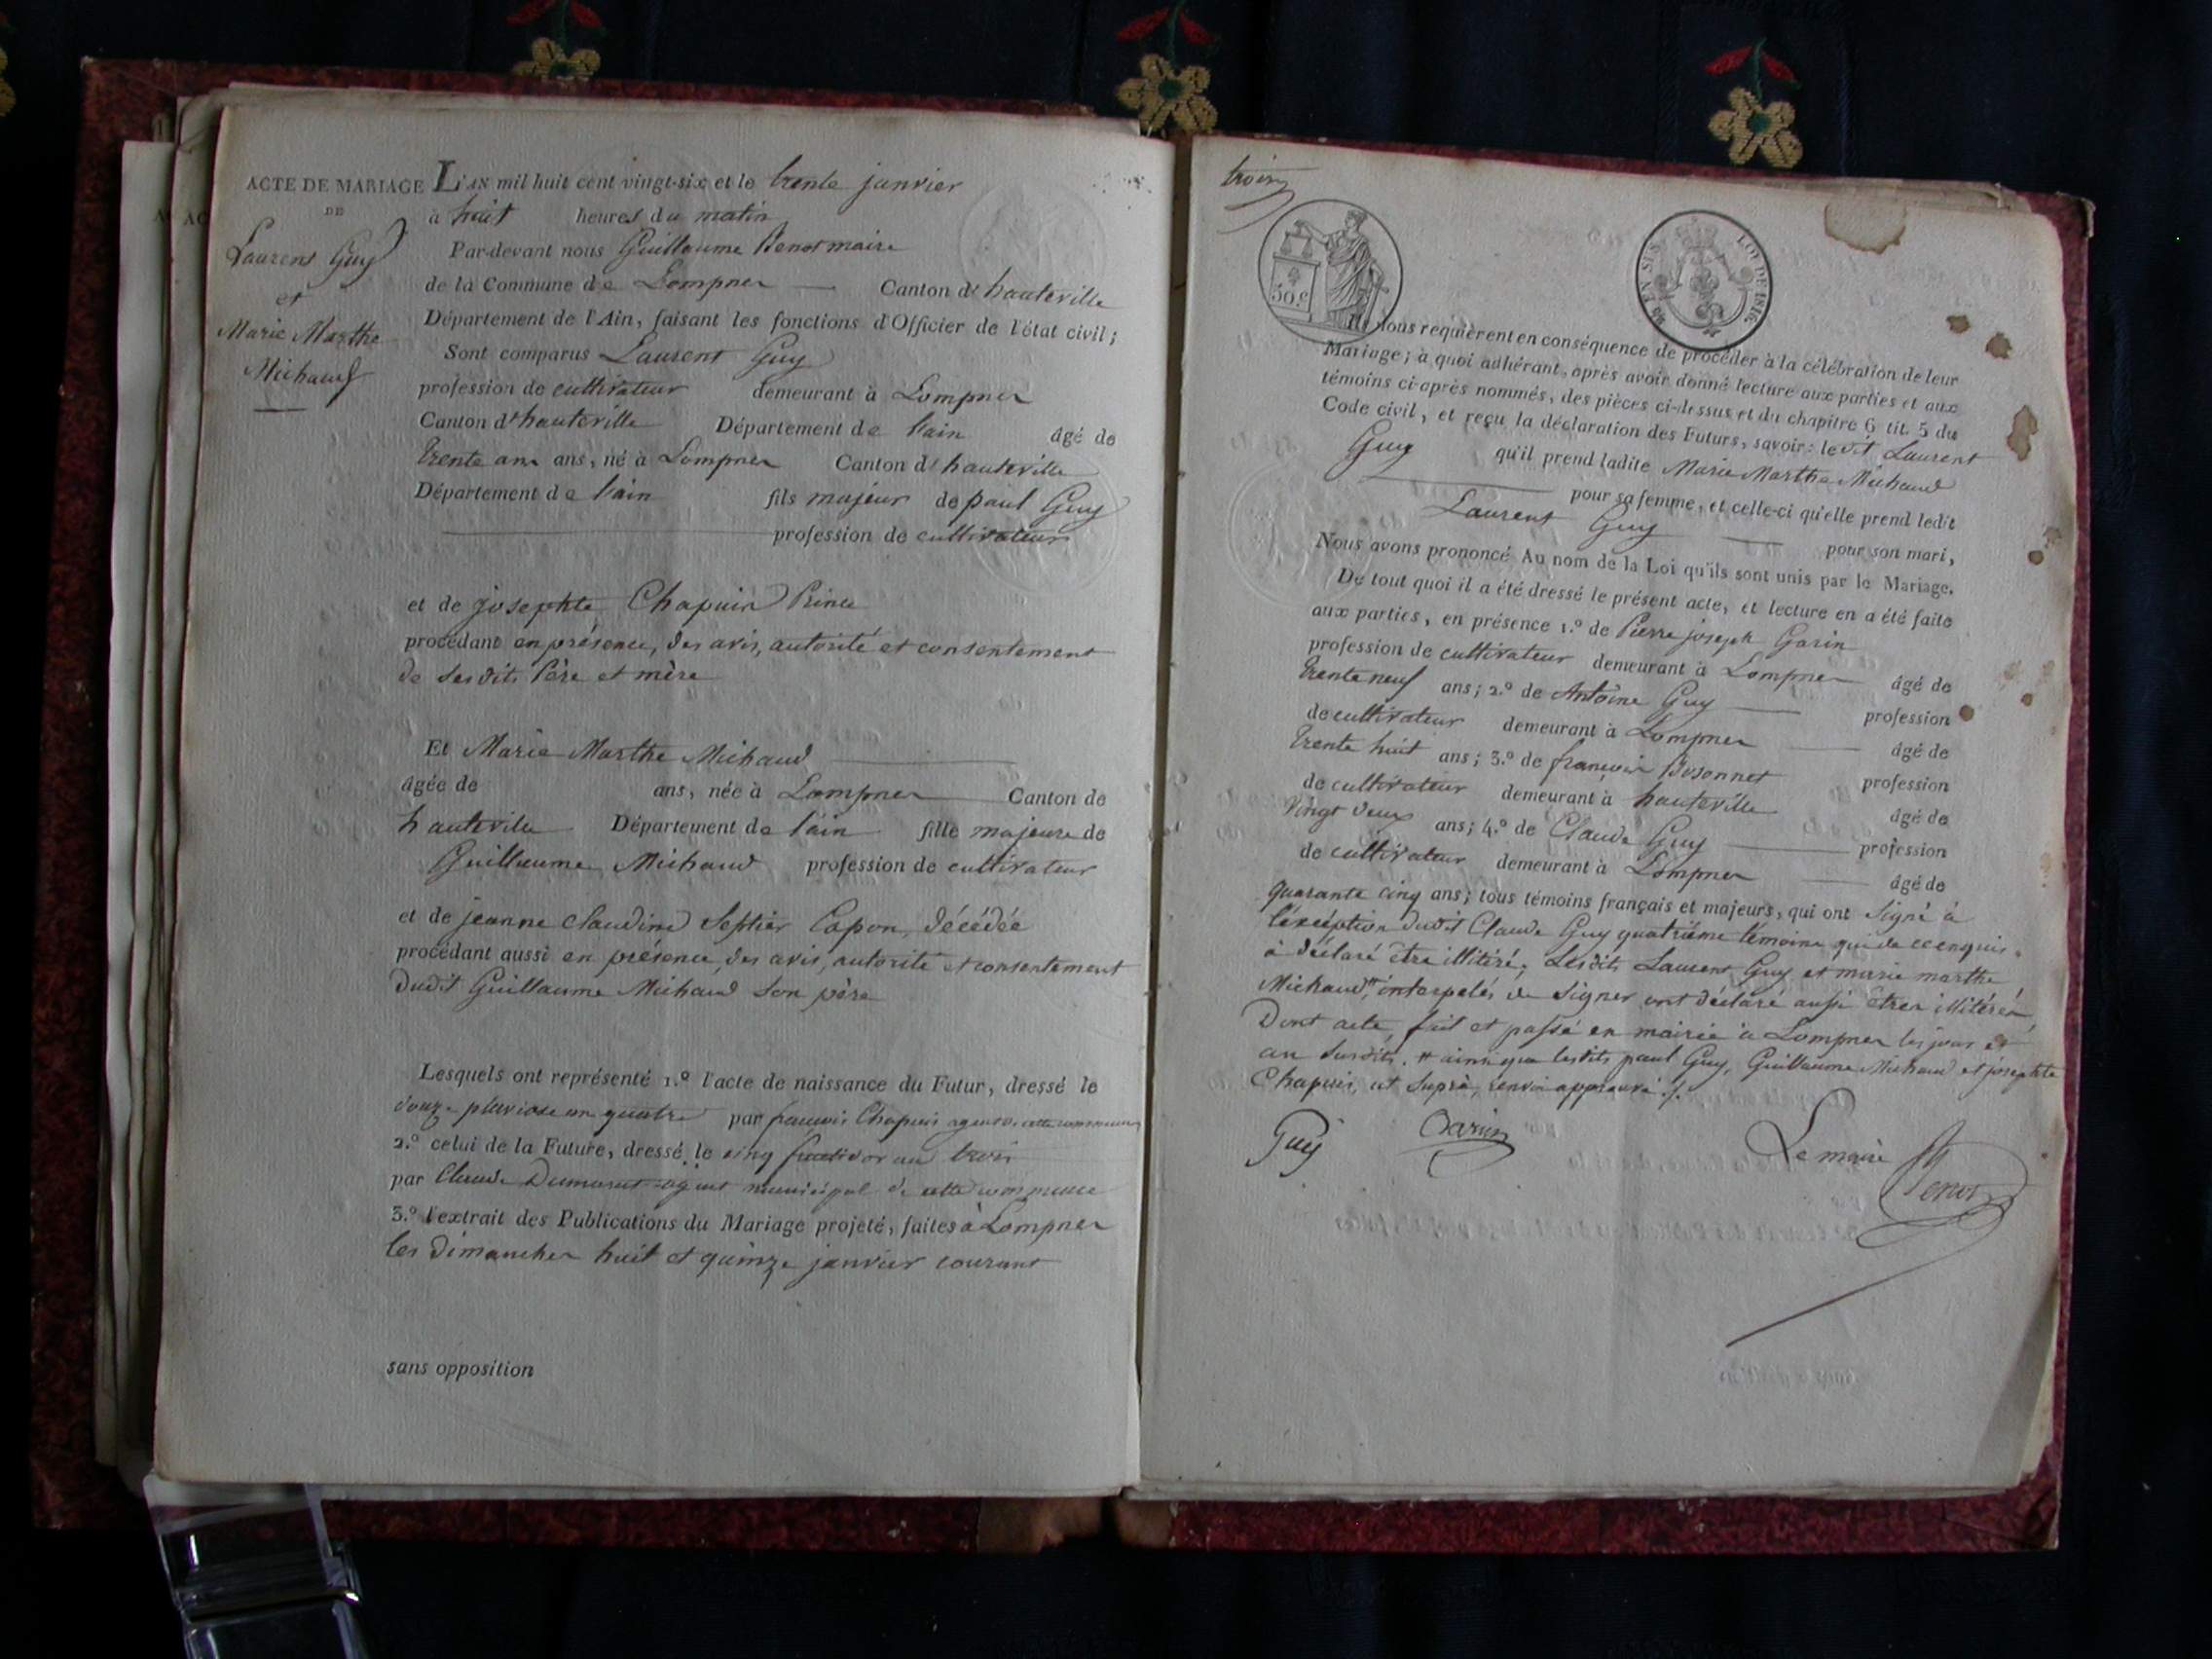 ACTE DE MARIAGE
DE
Laurent Guy
et
Marie Marthe
Michaud
L'AN mil huit cent vingt-six et le trente janvier
à huit heures du matin
Par-devant nous Guillaume Benot maire
de la Commune de Lompnes Canton d'hauteville
Département de l'Ain, faisant les fonctions d'Officier de l'état civil;
Sont comparus Laurent Guy
profession de cultivateur demeurant à Lompnes
Canton d'hauteville Département de l'ain âgé de
trente ans ans, né à Lompnes Canton d'hauteville
Département de l'ain fils majeur de paul Guy
profession de cultivateur
et de josephte Chapuis Prince
procédant en présence, des avis, autorité et consentement
de ses dits Père et mère
Et Marie Marthe Michaud
âgée de ans, née à Lompnes Canton de
hauteville Département de l'ain fille majeure de
Guillaume Michaud profession de cultivateur
et de jeanne Claudine Septier Capon, décédée
procédant aussi en présence, des avis, autorité et consentement
dudit Guillaume Michaud son père
Lesquels ont représenté 1.º l'acte de naissance du Futur, dressé le
douze pluviose an quatre par francois Chapuis agent de cette commune
2.º celui de la Future, dressé le cinq fructidor an trois
par Claude Dumarest agent municipal de cette commune
3.º l'extrait des Publications du Mariage projeté, faites à Lompnes
les dimanches huit et quinze janvier courant
sans opposition
trois
50 c.
EN SUS
LOI DE 1816.
Ils nous requièrent en conséquence de procéder à la célébration de leur
Mariage; à quoi adhérant, après avoir donné lecture aux parties et aux
témoins ci-après nommés, des pièces ci-dessus et du chapitre 6 tit. 5 du
Code civil, et reçu la déclaration des Futurs, savoir: le dit Laurent
Guy qu'il prend ladite Marie Marthe Michaud
pour sa femme, et celle-ci qu'elle prend ledit
Laurent Guy pour son mari,
Nous avons prononcé Au nom de la Loi qu'ils sont unis par le Mariage.
De tout quoi il a été dressé le présent acte, et lecture en a été faite
aux parties, en présence 1.º de Pierre joseph Garin
profession de cultivateur demeurant à Lompnes âgé de
trente neuf ans; 2.º de Antoine Guy profession
de cultivateur demeurant à Lompnes âgé de
trente huit ans; 3.º de francois Bosonnet profession
de cultivateur demeurant à hauteville âgé de
vingt deux ans; 4.º de Claude Guy profession
de cultivateur demeurant à Lompnes âgé de
quarante cinq ans; tous témoins français et majeurs, qui ont signé à
l'exéception dudit Claude Guy quatrième témoins qui de ce enquis
à déclaré être illitéré; Lesdits Laurent Guy et marie marthe
Michaud # interpelés de signer ont déclaré aussi êtres illitérés,
Dont acte, fait et passé en mairie à Lompnes les jour et
an susdits. # ainsi que lesdits paul Guy, Guillaume Michaud et josephte
Chapuis, ut suprà, renvoi approuvé ./.
Guy Garin Le maire Benot